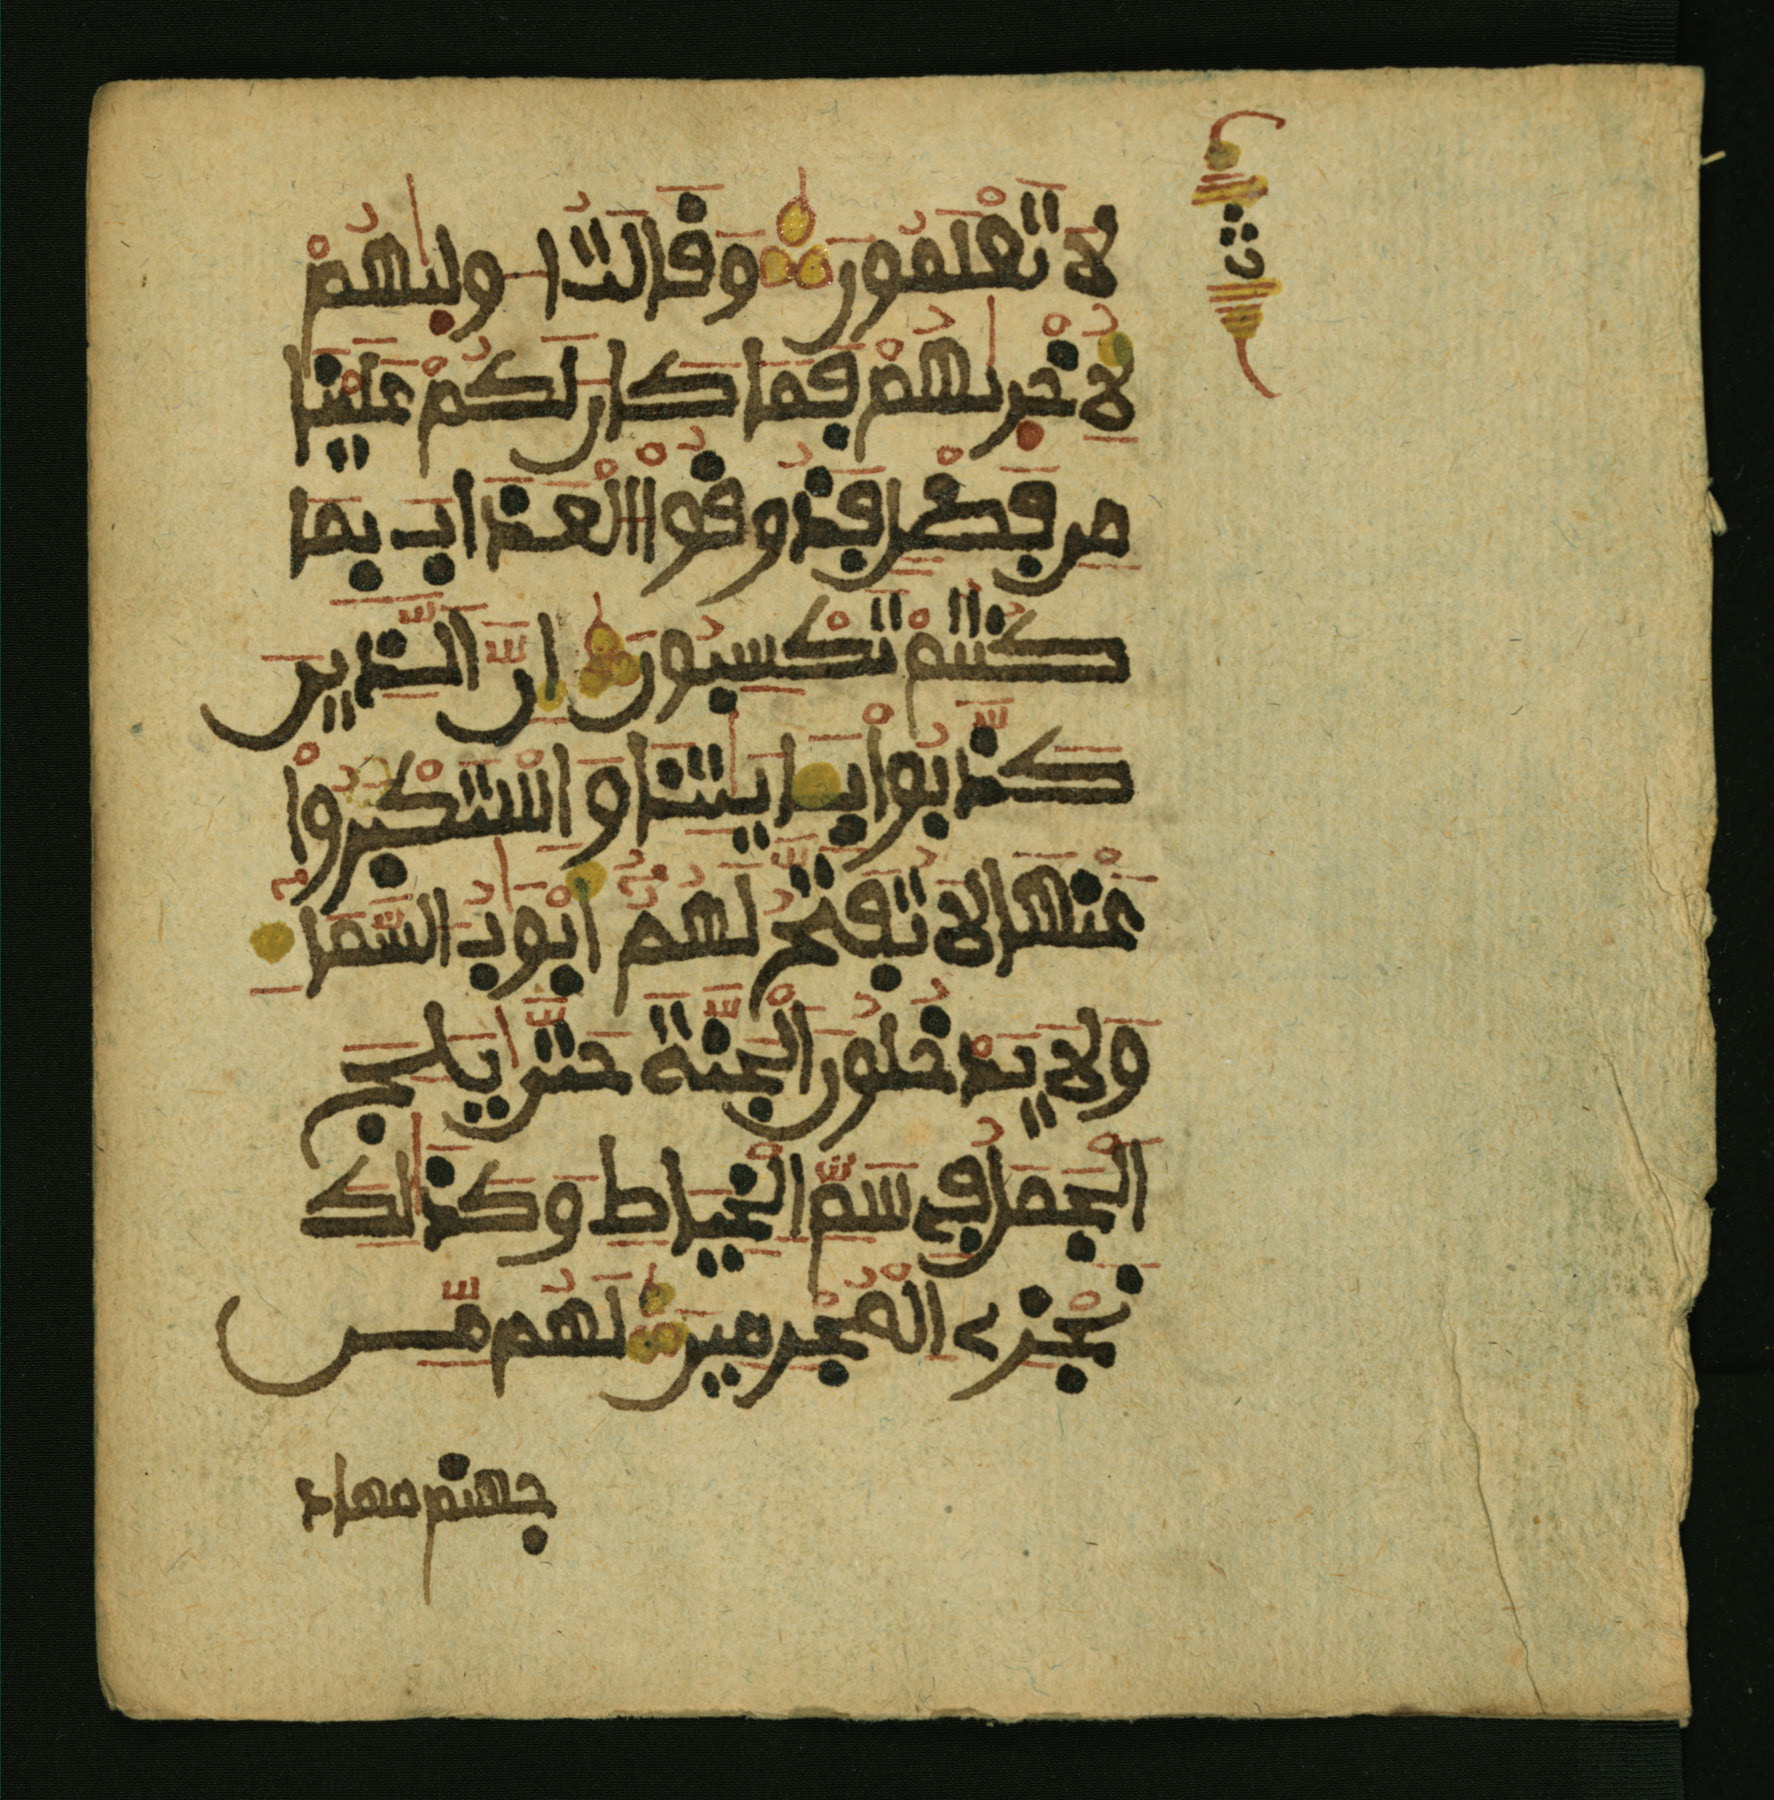 ث
لَا تَعْلَمُونَ وَقَالَتُ اُولٜيٰهُمْ
لِأُخْرٜيٰهُمْ فَمَا كَانَ لَكُمْ عَلَيْنَا
مِن فَضْلٍ فَذُوقُواْ اٰ۬لْعَذَابَ بِمَا
كُنتُمْ تَكْسِبُونَ إِنَّ اَ۬لذِينَ
كَذَّبُواْ بِـَٔايَٰتِنَا وَاسْتَكْبَرُواْ
عَنْهَا لَا تُفَتَّحُ لَهُمُۥٓ أَبْوَٰبُ السَّمَآءِ
وَلَا يَدْخُلُونَ اَ۬لْجَنَّةَ حَتَّىٰ يَلِجَ
الْجَمَلُ فِے سَمِّ الْخِيَاطِ وَكَذَٰلِكَ
نَجْزِے اِ۬لْمُجْرِمِينَ لَهُم مِّن
جهنم مهاد